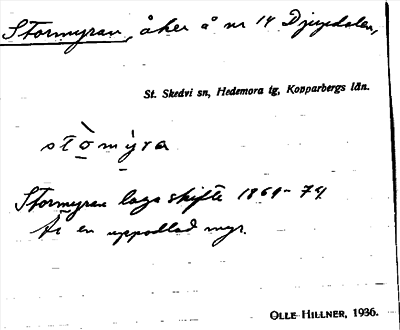 Stormyran, åker å nr 14 Djupdalen,
St. Skedvi sn, Hedemora tg, Kopparbergs län.
stòmỳra
Stormyran laga skifte 1869-74
Är en uppodlad myr.
OLLE HILLNER, 1936.